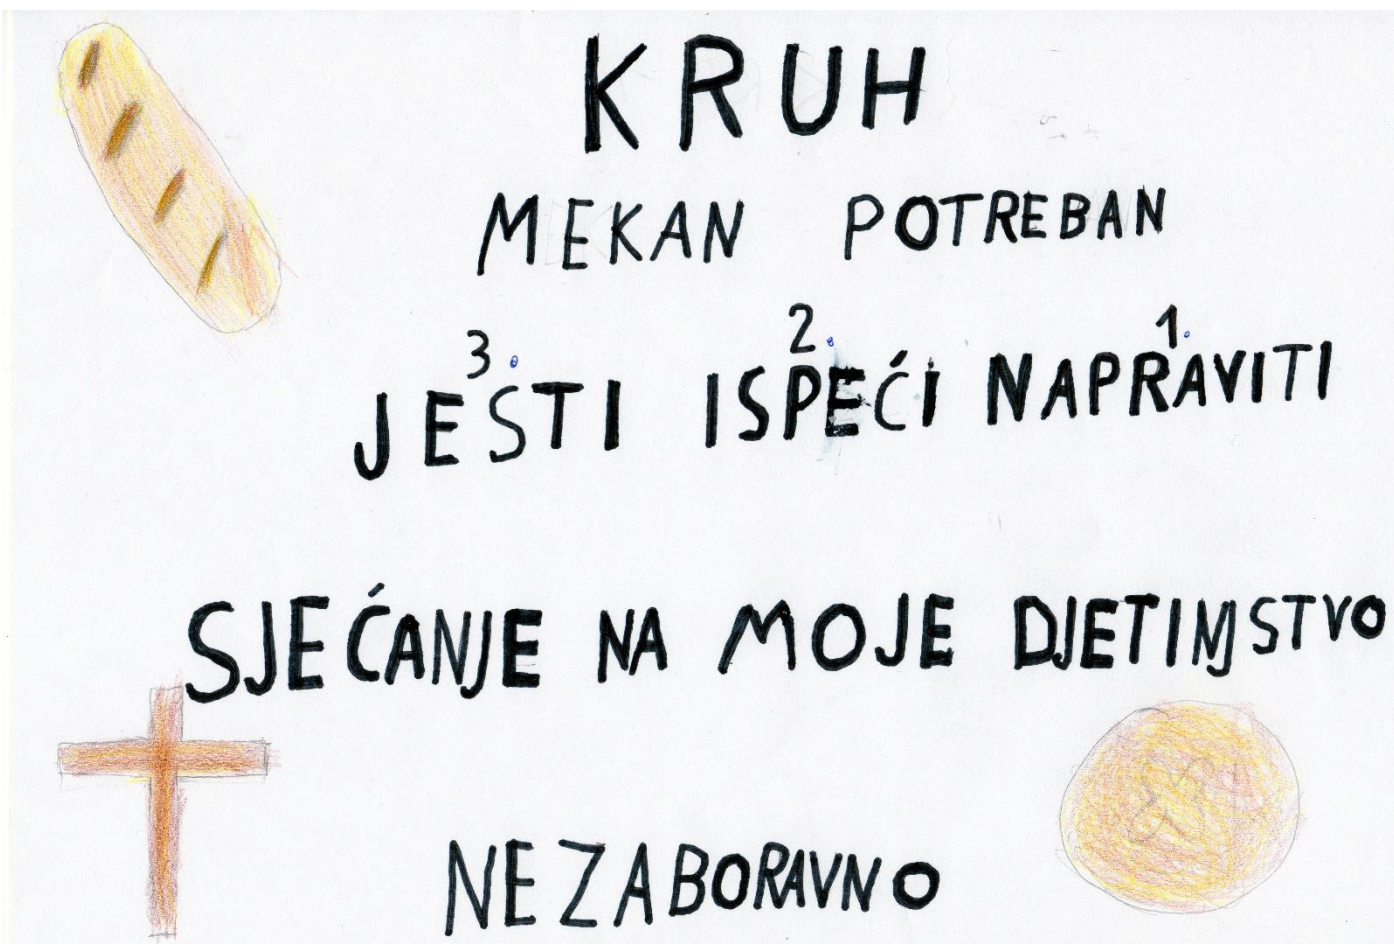 KRUH
MEKAN POTREBAN
3. 2. 1.
JESTI ISPEĆI NAPRAVITI
SJEĆANJE NA MOJE DJETINJSTVO
NEZABORAVNO